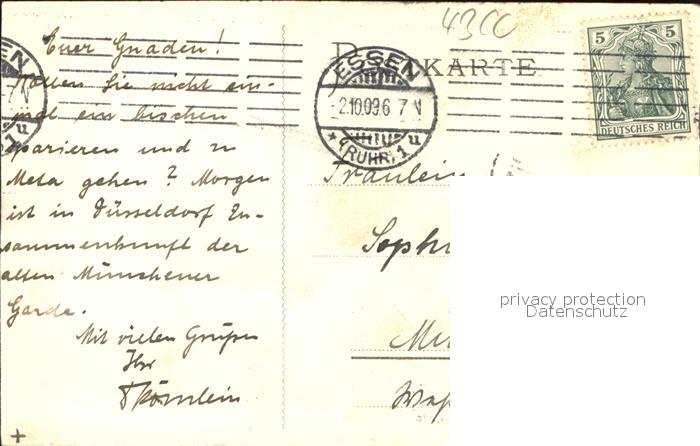 43CC
Euer Gnaden!
Wollen Sie nicht ein-
mal ein bischen
sparieren und zu
Meta gehen? Morgen
ist in Düsseldorf Zu-
sammenkunft der
alten Münchener
Garde.
Mit vielen Grüßen
Ihr
KARTE
ESSEN
2.10.09.6-7N
* (RUHR) 1 u
5 5
DEUTSCHES REICH
Fräulein
Soph
privacy protection
Datenschutz